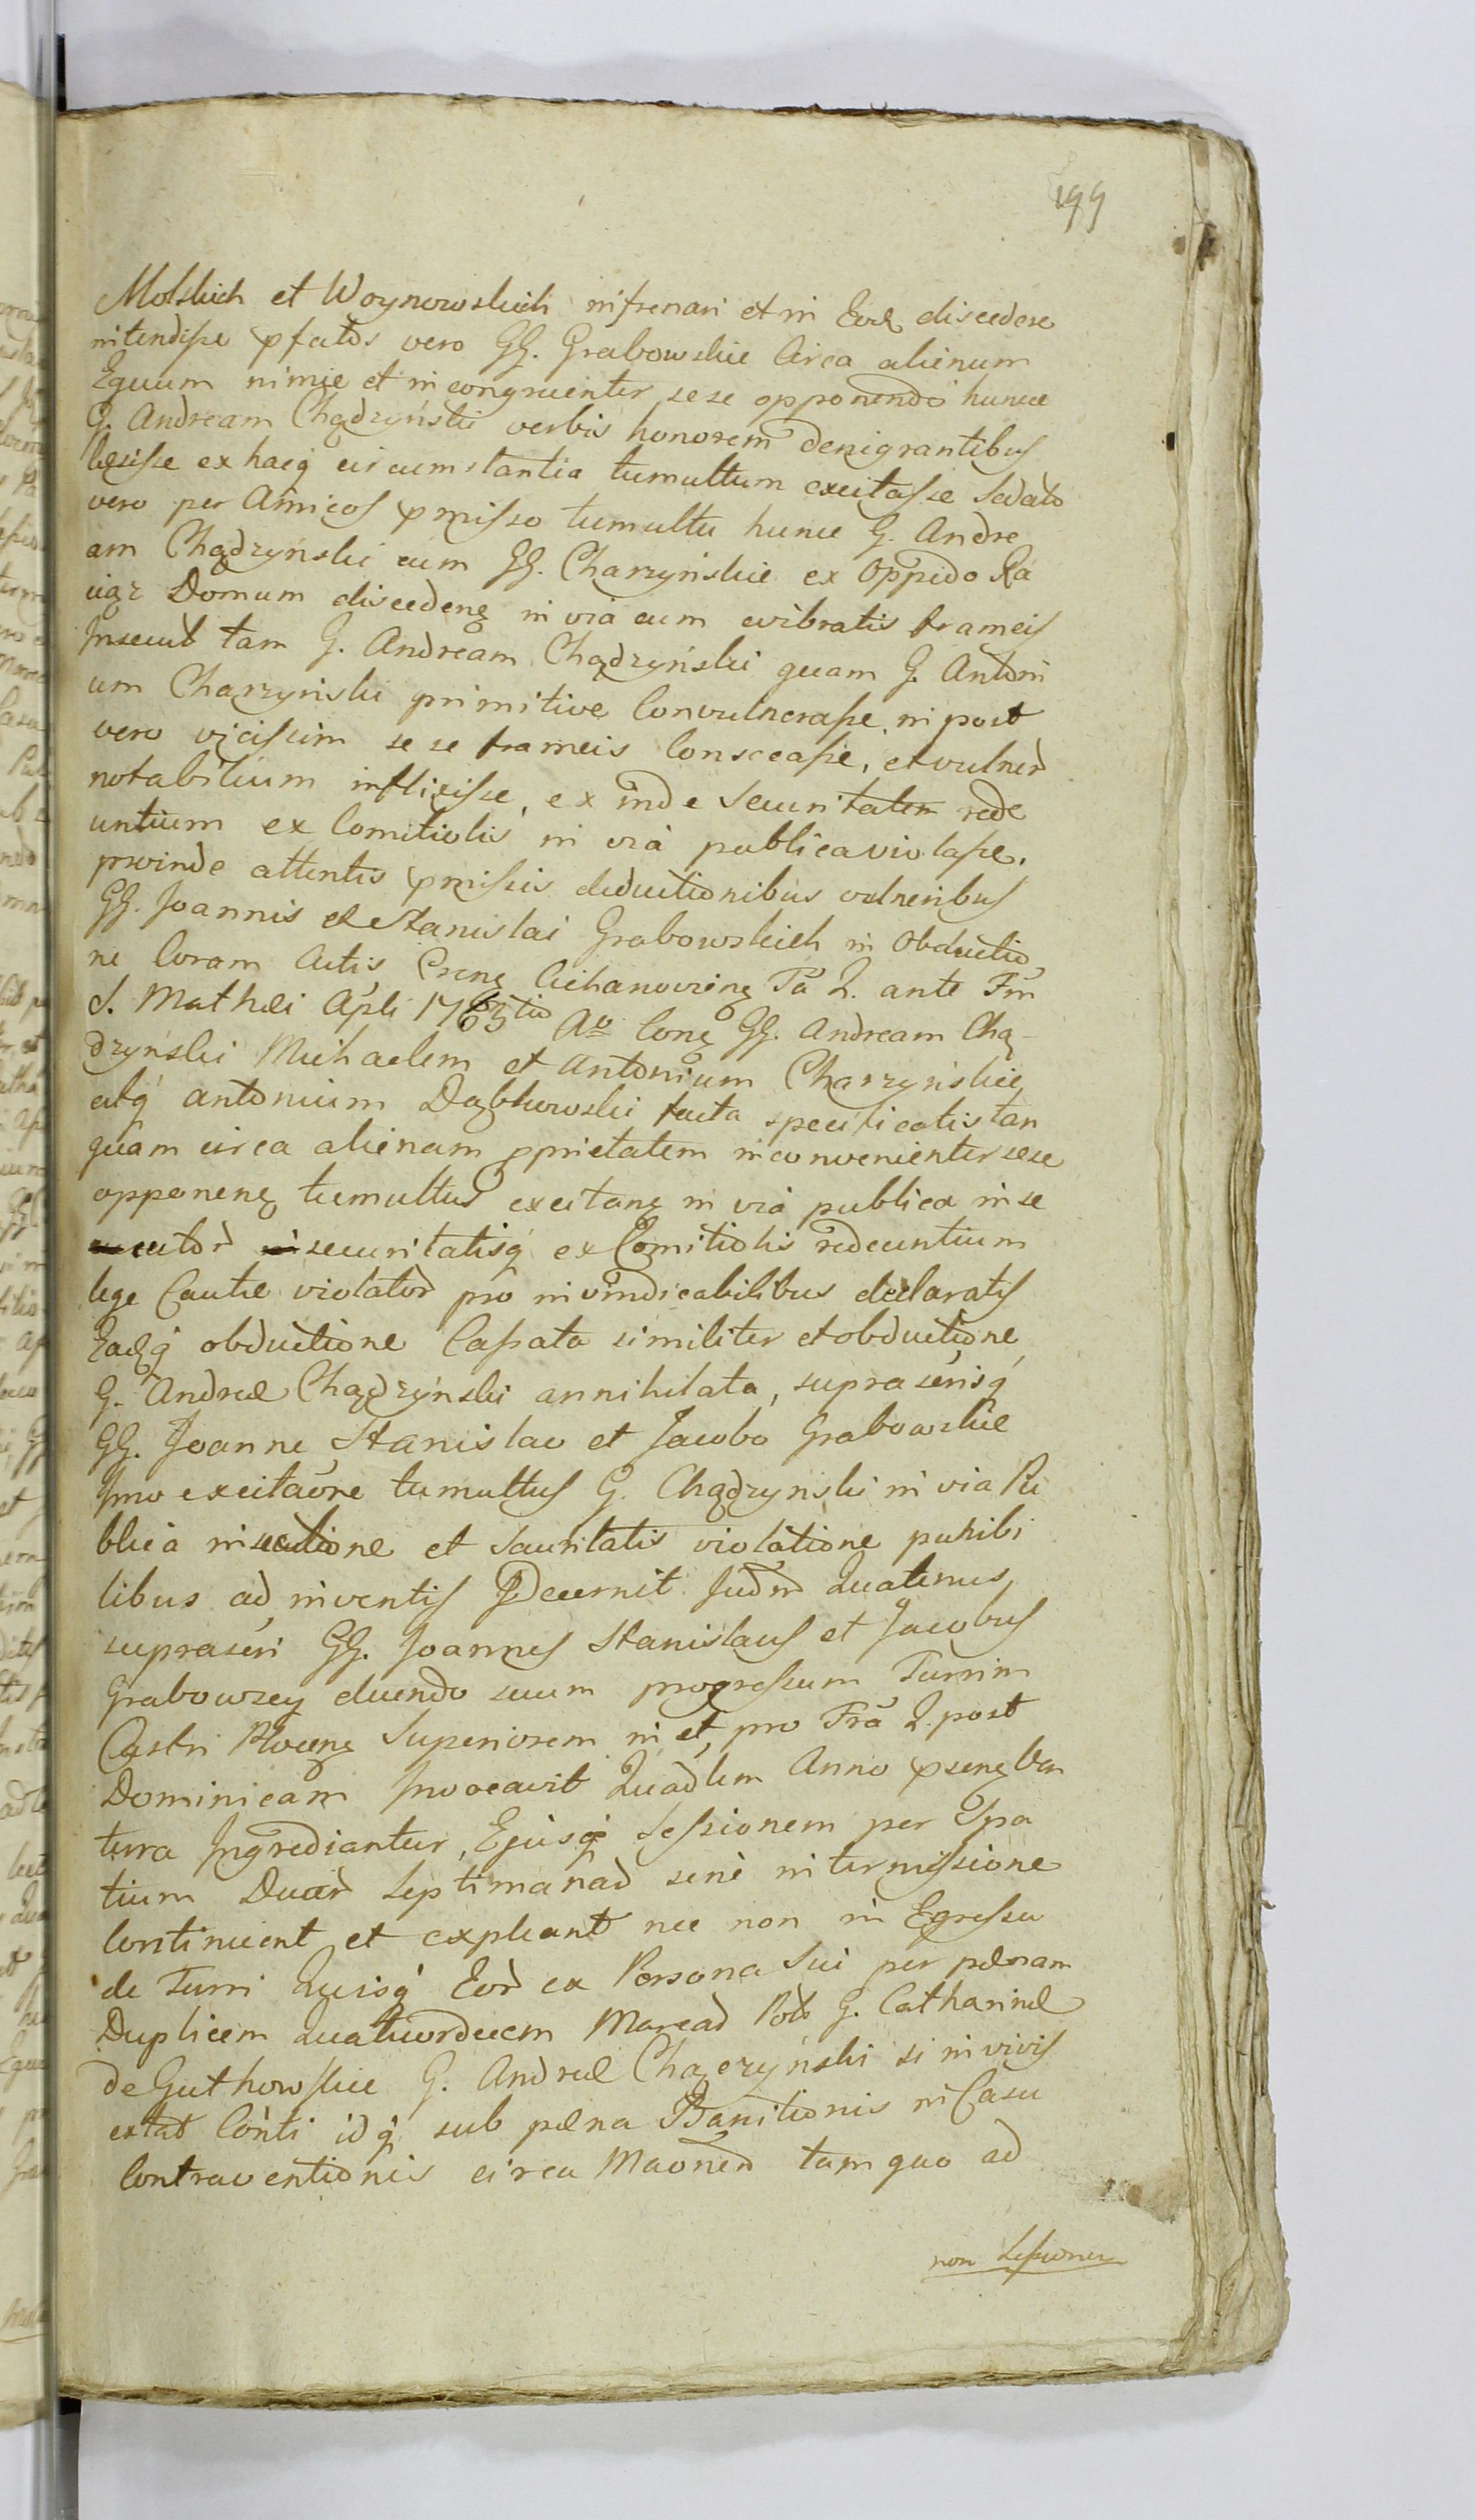 199
Molskich et Woynowskich infrenari et in Eod discedere
intendisse pfatos vero GG. Grabowskie Circa alienum
Equum nimie et incongruenter sese opponendo hunce
G. Andream Chądzyński verbis honorem denigrantibus
læsisse ex hacq circumstantia tumultum excitasse Sedato
vero per Amicos pmisso tumultu hunce G. Andre
am Chądzyński cum GG. Charzyńskie ex Oppido Ra
ciąz Domum disceden in via cum evibratis frameis
Insecut tam G. Andream Chądzyński quam G. Antoni
um Charzyński primitive Convulnerasse, in post
vero vicissim se se frameis Consecasse, et vulner
notabilium inflixisse, ex inde Securitatem rede
untium ex Comitiolis in via publica violasse.
proinde attentis pmissis deductionibus vulneribus
GG. Joannis et Stanislai Grabowskich in Obductio
ne Coram Actis Cren Ciechanovien Fa 2. ante Fm
S. Mathæi Apli 1763tio Ao Con GG. Andream Chą
dzyński Michaelem et Antonium Charzyńskie
atq Antonium Dąbkowski facta specificatis tan
quam circa alienam pprietatem inconvenienter sese
opponen tumultus excitan in via publica inse
cutor securitatisq ex Comitiolis redeuntium
lege Cautæ violator pro invindicabilibus declaratis
Eadq obductione Cassata similiter et obductione
G. Andreæ Chądzyński annihilata, suprascrisq
GG. Joanne Stanislao et Jacobo Grabowskie
pro excitaone tumultus G. Chądzynski in via Pu
blica insecutione et Securitatis violatione punibi
libus ad inventis Decernit Judm Quatenus
suprascri GG. Joannes Stanislaus et Jacobus
Grabowscy eluendo suum progressum Turrim
Castri Plocen Superiorem in et, pro Fra 2. post
Dominicam Invocavit Quadlem Anno psen Ven
tura Ingrediantur, Ejusq Sessionem per Spa
tium Duar Septimanad sine intermissione
Continuent et expleant nec non in Egressu
de Turri Quisq Eor ex Persona Sui per pænam
Duplicem Quatuordecem Marcad Pols G. Catharinæ
de Guthowskie G. Andreæ Chądzyński si in vivis
extat Conti idq sub pæna Banitionis in Casu
Contraventionis circa Maonem tam quo ad
non Sessionem